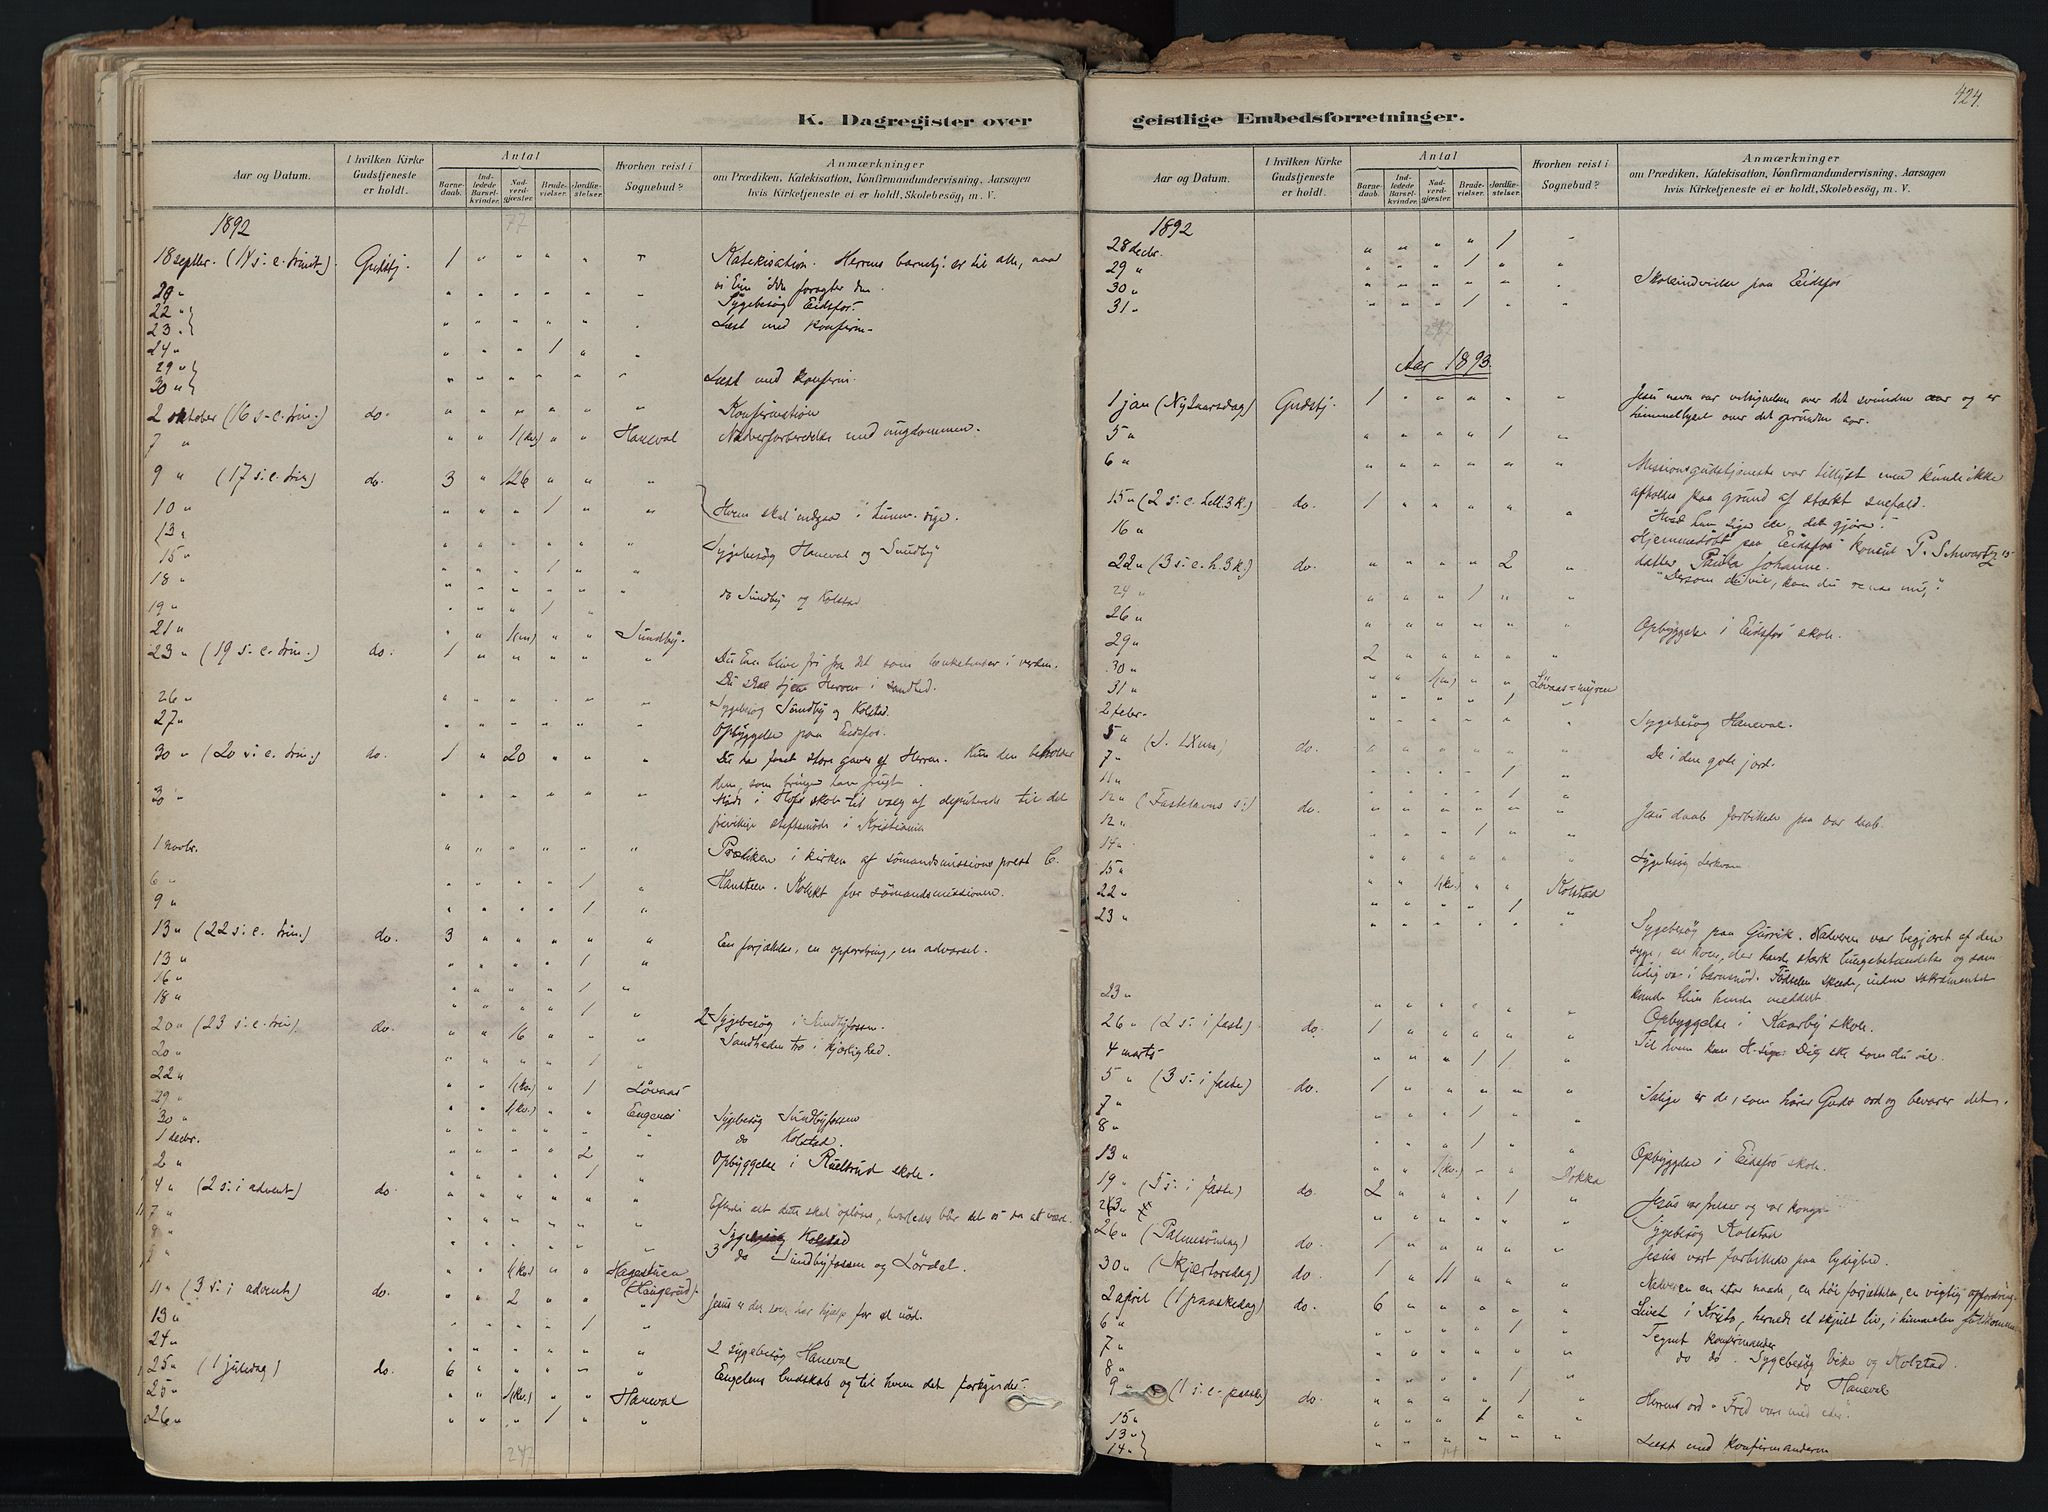 424.
K. Dagregister over
geistlige Embedsforretninger.
Aar og Datum.
I hvilken Kirke Gudstjeneste er holdt.
Antal
Barnedaab.
Indledede Barselkvinder.
Nadverdgjæster.
Brudevielser.
Jordfæstelser.
Hvorhen reist i Sognebud?
Anmærkninger
om Prædiken, Katekisation, Konfirmandundervisning, Aarsagen
hvis Kirketjeneste ei er holdt, Skolebesög, m. V.
1892
18 septbr. (14 s. e. trinit.) Gudstj. 1 " " " " " Katekisation. Herrens barmhj. er til alle, naar
vi kun ikke foragter den.
" Sygebesög Eidsfos.
22 "
23 " Læst med konfirm.
24 " 1
29 "
30 " Læst med konfirm.
2 oktober (16 s. e. trin.) do. Konfirmation
7 " 1(kv.) " " Haneval Nadverforberedelse med ungdommen.
9 " (17 s. e. trin) do. 3 " 126 " " "
10 " 1 Hvem skal indgaa i himm. rige.
13 "
15 " Sygebesög Haneval og Sundby
18 " 1
19 " do Sundby og Kolstad
21 " 1
23 " (19 s. e. trin.) do. 1 Sundby.
Du kan blive fri fra det som i verden.
Du skal tjene Herren i sandhed.
26 " Sygebesög Sundby og Kolstad.
27 " Opbyggelse paa Eidsfos.
30 " (20 s. e. trin) do. 1 " 20 " " " Du har faaet store gaver af Herren. Kun den beholder
dem, som bringer ham frugt.
30 " Möde i Hofs skole til valg af deputerede til det
frivillige stiftsmöde i Kristiania
1 novbr. Prædiken i kirken af sömandsmissionsprest C.
6 " 1 Hansteen. Kollekt for sömandsmissionen.
9 " 1
13 " (22 s. e. trin.) do. 3 En forjættelse, en opfordring, en advarsel.
13 " 1
16 "
18 " 1
20 " (23 s. e. trin) do. " " 16 2 Sygebesög i Sundbyfossen.
20 " 1 Sandheden tro i kjærlighed.
22 "
29 " 1(kv.) " 1 Lövaas
30 " 1(kv.) " " Engenes Sygebesög Sundbyfossen
1 decbr. do Kolstad.
2 " 2 Opbyggelse i skole.
4 " (2 s. i advent) do. 1 Efterdi alt dette skal oplöses, hvorledes bör det os da at være.
7 "
8 " Sygebesög Kolstad
9 " 3 do Sundbyfossen og Lördal.
1(kv.) Hagestuen
11 " (3 s. i advent) do. 2 (Haugerud).
13 " 1 Jesus er den som har hjælp for al nöd.
24 " 2 sygebesög Haneval
25 " (1 juledag) do. 6 Engelens budskab og til hvem det forkyndes.
25 " 1(kv.) " " Haneval
26 " 1
247
1892
28 decbr. 1
29 " 1
30 " Skoleindvielse paa Eidsfos
31 " 1
Aar 1893.
1 jan (Nytaarsdag) Gudstj. 1 Jesu navn var velsignelsen over det svundne aar og er
himmellyset over det oprundne aar.
5 " 1
6 " Missionsgudstjeneste var tillyst men kunde ikke
afholdes paa grund af stærkt snefald.
15 " (2 s. e. hell. 3 k.) do. 1 "Hvad han siger eder, det gjörer."
16 " Hjemmedöbt paa Eidsfos konsul P. Schwartz's
22 " (3 s. e. h. 3 k.) do. 2 datter Paula Johanne.
24 " 1 "Dersom du vil, kan du rense mig."
26 " Opbyggelse i Eidsfos skole.
29 " 2
30 " 1(m) Lövaas-myren
31 " 1
2 febr. Sygebesög Haneval.
5 " (S. LXms) do. De i den gode jord.
7 " 1
11 " 1
12 " (Fastelavns s.) do. Jesu daab forbillede paa vor daab.
12 " 1
14 " Sygebesög
15 " 1(kv.) Kolstad
22 " 1
23 " Sygebesög paa . Nadveren var begjæret af den
syge, en kone, der havde stærk lungebetændelse og sam-
tidig var i barnsnöd. Födselen skede, inden sakramentet
kunde blive hende meddelt.
23 " Opbyggelse i Kaarby skole.
26 " (2 s. i faste) do. 1 Til hvem kan H. sige: Dig ske som du vil.
4 marts 1 1
5 " (3 s. i faste) do. 1 Salige er de, som hörer Guds ord og bevarer det.
7 " 1
8 " 1
13 " Opbyggelse i Eidsfos skole.
1(kv.) Dokka
19 " (5 s. i faste) do. 2 1 Jesus vor frelser og vor konge
23 " Sygebesög Kolstad
26 " (Palmesöndag) do. 1 Jesus vort forbillede paa lydighed.
30 " (Skjærtorsdag) do. 1 " 11 Nadveren en stor naade, en höi forjættelse, en vigtig opfordring.
2 april (1 paaskedag) do. 6 Livet i Kristo, hernede et skjult liv, i himmelen fuldkomment
6 " 1 Tegnet konfirmander
7 " do do. Sygebesög Vike og Kolstad.
8 " 1 do Haneval
9 " (1 s. e. paaske) do. 1 Herrens ord "Fred være med eder".
15 " 1
13 "
14 " Læst med konfirmanderne